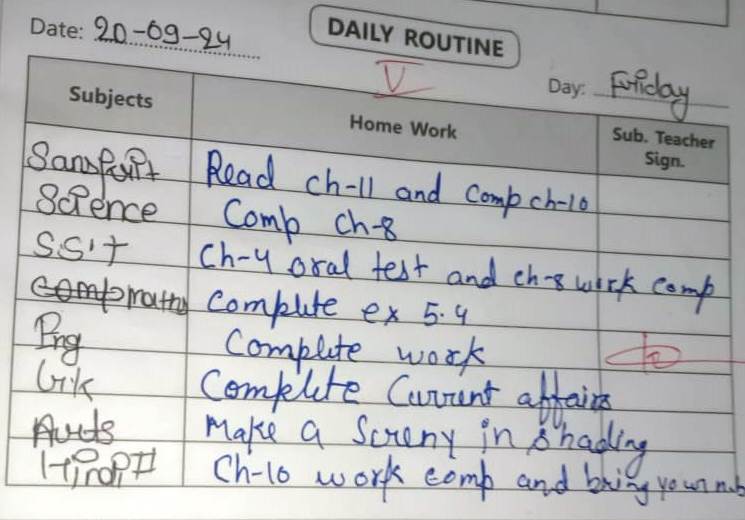 Date: 20-09-24
DAILY ROUTINE
V
Day: Friday
Subjects Home Work Sub. Teacher Sign.
Sanskrit Read ch-11 and comp ch-10
Science Comp Ch-8
S.S.T Ch-4 oral test and ch-8 work comp
comp maths Complete ex 5.4
Eng Complete work
G.K Complete Current affairs
Arts Make a Screny in shading
Hindi II Ch-10 work comp and bring your nb